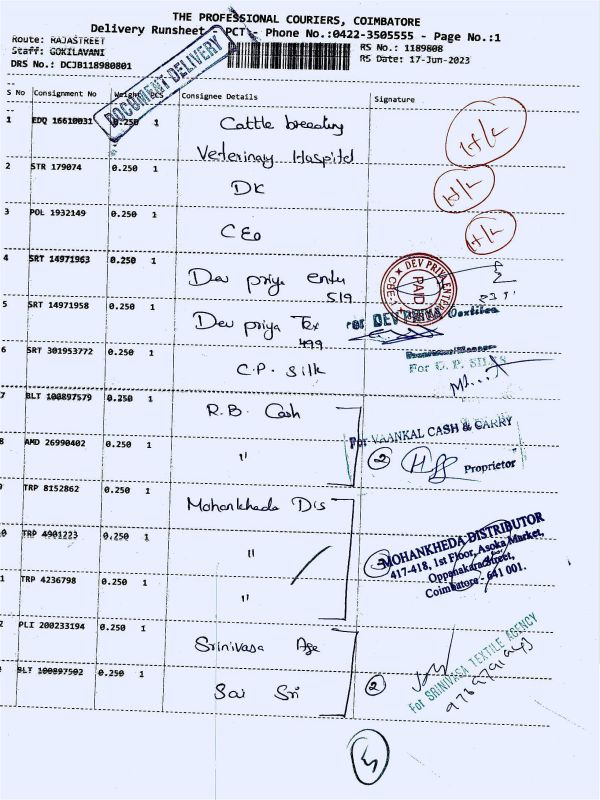 THE PROFESSIONAL COURIERS, COIMBATORE
Delivery Runsheet PCT Phone No.:0422-3505555 - Page No.:1
Route: RAJASTREET
RS No.: 1189808
Staff: GOKILAVANI
RS Date: 17-Jun-2023
DRS No.: DCJB118980801
DOCUMENT DELIVERY
S No Consignment No Weight PCS Consignee Details Signature
1 EDQ 16610031 0.250 1 Cattle breeding
Veterinary Hospital
2 STR 179074 0.250 1 DK
3 POL 1932149 0.250 1 CEO
4 SRT 14971963 0.250 1 Dev priya Enter
519
DEV PRIYA ENTER
PAID
CBE-1
5 SRT 14971958 0.250 1 Dev priya Tex
499
For DEV PRIYA Textiles
6 SRT 301953772 0.250 1 C.P. Silk
For C. P. SILKS
7 BLT 100897579 0.250 1 R.B. Cash
8 AMD 26990402 0.250 1 "
For VAANKAL CASH & CARRY
2
Proprietor
TRP 8152862 0.250 1 Mohankheda Dis
0 TRP 4901223 0.250 1 "
1 TRP 4236798 0.250 1 "
3
MOHANKHEDA DISTRIBUTOR
417-418, 1st Floor, Asoka Market,
Oppanakara Street,
Coimbatore - 641 001.
2 PLI 200233194 0.250 1 Srinivasa Age
BLT 100897502 0.250 1 Sai Sri
2
For SRINIVASA TEXTILE AGENCY